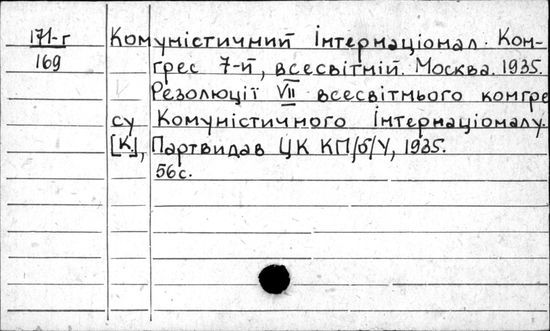 171-г
169
Комуністичний Інтернаціонал. Кон-
грес 7-й, всесвітній. Москва. 1935.
Резолюції VII всесвітнього конгре
су Комуністичного Інтернаціоналу.
[К.], Партвидав ЦК КП/б/У, 1935.
56с.